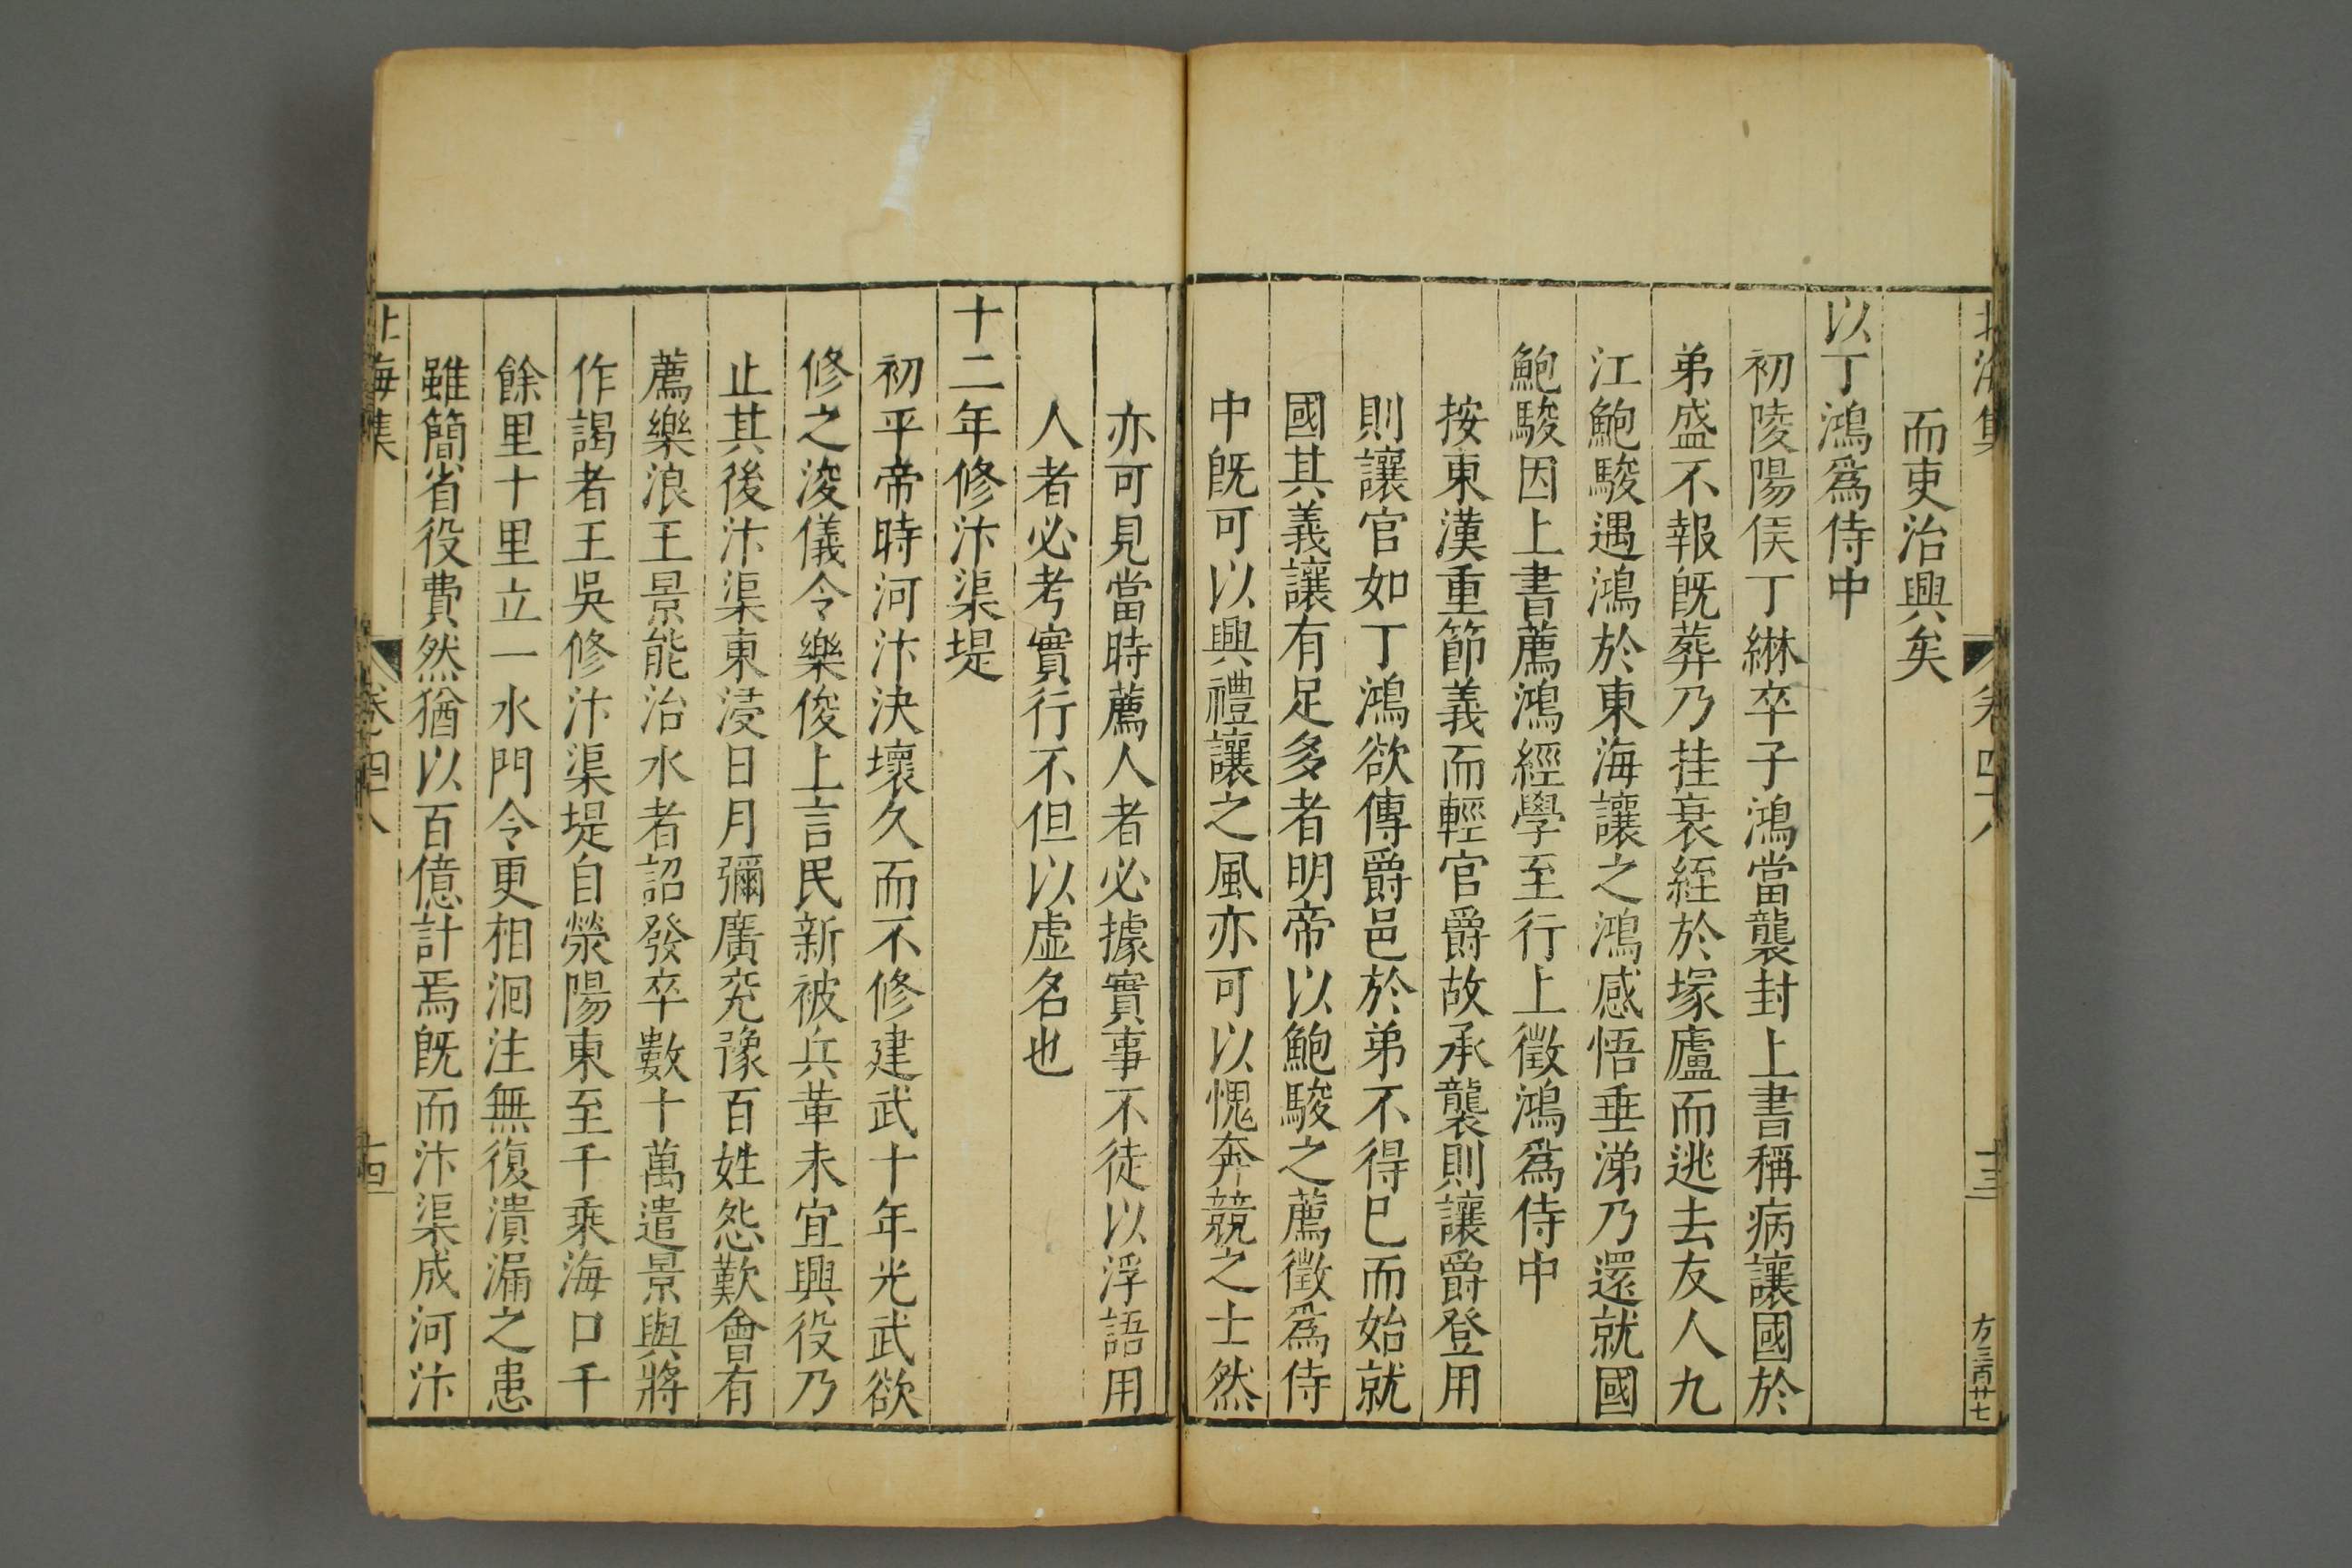 北海集 卷四十八 十三 方三百廿七
而吏治興矣
以丁鴻爲侍中
初陵陽侯丁綝卒子鴻當襲封上書稱病讓國於
弟盛不報旣葬乃挂衰絰於塚廬而逃去友人九
江鮑駿遇鴻於東海讓之鴻感悟垂涕乃還就國
鮑駿因上書薦鴻經學至行上徵鴻爲侍中
按東漢重節義而輕官爵故承襲則讓爵登用
則讓官如丁鴻欲傳爵邑於弟不得已而始就
國其義讓有足多者明帝以鮑駿之薦徵爲侍
中旣可以興禮讓之風亦可以愧奔競之士然
亦可見當時薦人者必據實事不徒以浮語用
人者必考實行不但以虛名也
十二年修汴渠堤
初平帝時河汴決壞久而不修建武十年光武欲
修之浚儀令樂俊上言民新被兵革未宜興役乃
止其後汴渠東浸日月彌廣兖豫百姓怨歎會有
薦樂浪王景能治水者詔發卒數十萬遣景與將
作謁者王吳修汴渠堤自滎陽東至千乘海口千
餘里十里立一水門令更相洄注無復潰漏之患
雖簡省役費然猶以百億計焉旣而汴渠成河汴
北海集 卷四十八 十四